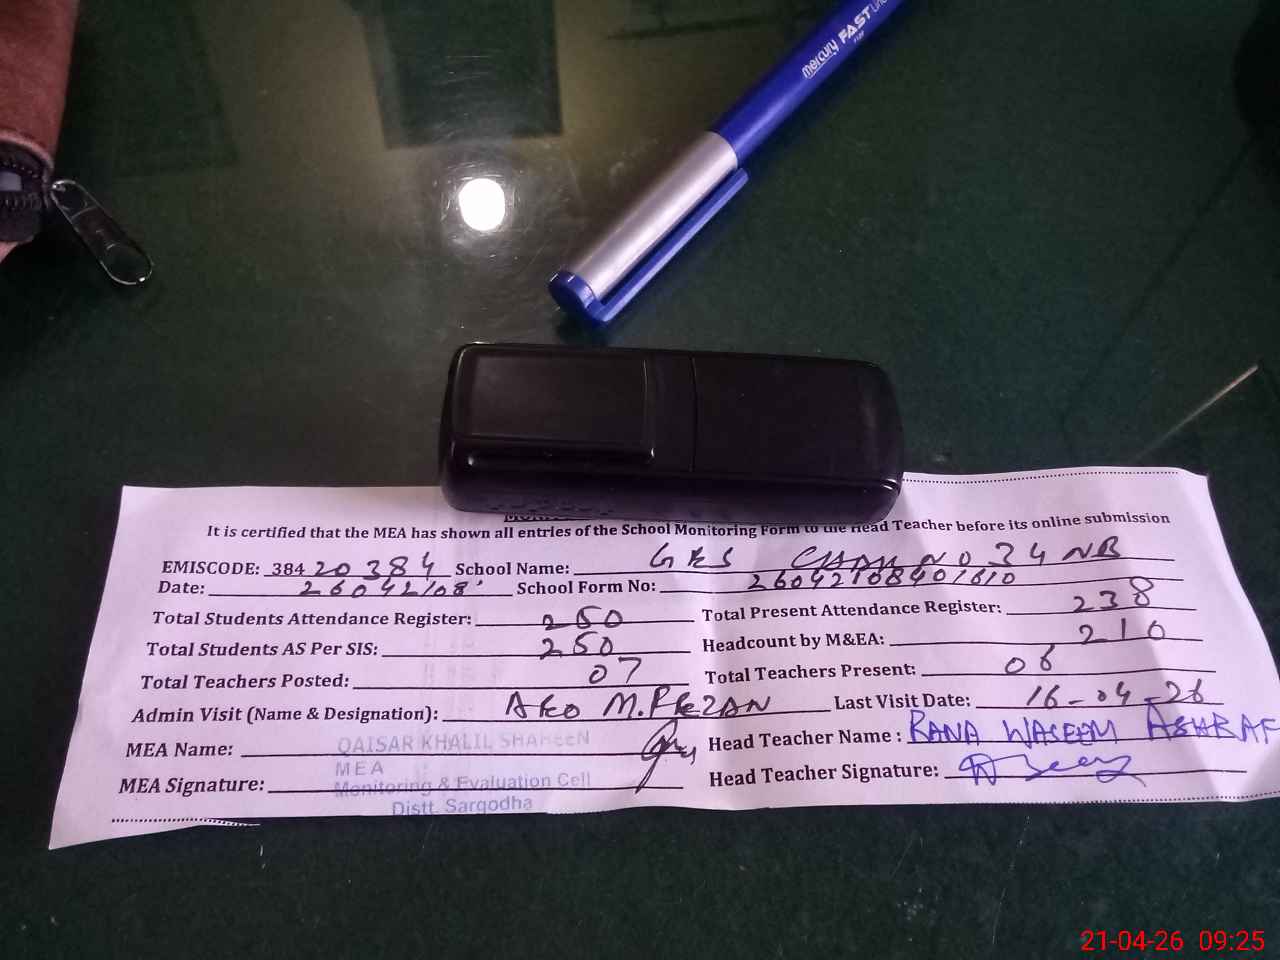 mercury FAST Line
It is certified that the MEA has shown all entries of the School Monitoring Form to the Head Teacher before its online submission
EMISCODE: 38420384 School Name: CHAK NO 34 NB
Date: 26042108 School Form No:
Total Students Attendance Register: 250 Total Present Attendance Register: 238
Total Students AS Per SIS: 250 Headcount by M&EA: 210
Total Teachers Posted: 07 Total Teachers Present: 06
Admin Visit (Name & Designation): AEO M. Last Visit Date: 16-04-26
MEA Name: QAISAR KHALIL SHAHEEN Head Teacher Name : RANA WASEEM ASHRAF
MEA
MEA Signature: Monitoring & Evaluation Cell Head Teacher Signature:
Distt. Sargodha
21-04-26 09:25